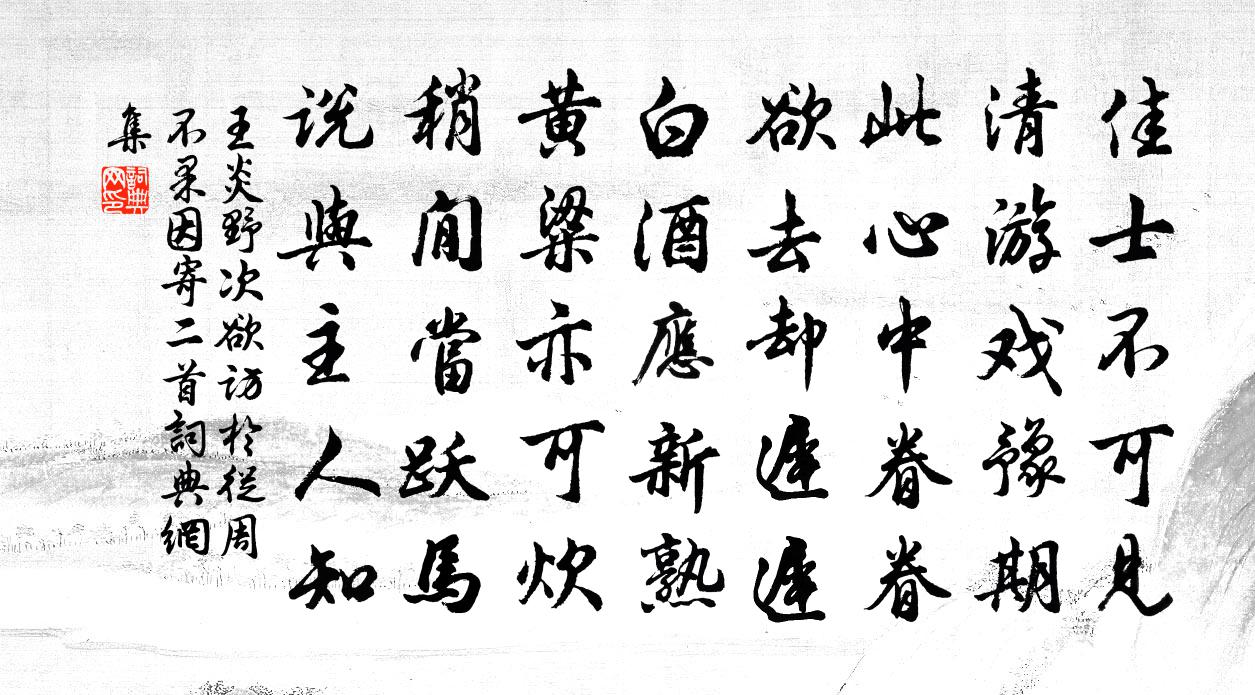 佳士不可见
清游戏豫期
此心中眷眷
欲去却迟迟
白酒應新熟
黄粱亦可炊
稍閒當跃馬
説與主人知
王炎野次欲访於從周
不果因寄二首詞典網
集
詞典
网印